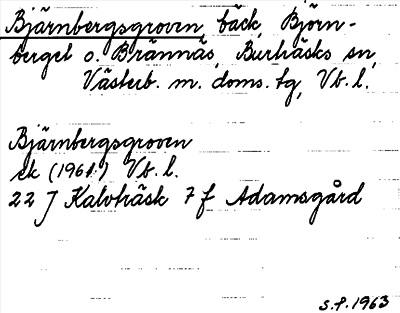 Bjärnbergsgroven, bäck, Björn-
berget o. Brännäs, Burträsks sn,
Västerb. m. doms. tg, Vb. l.
Bjärnbergsgroven
ek (1961) Vb. l.
22 J Kalvträsk 7 f Adamsgård
S.P. 1963